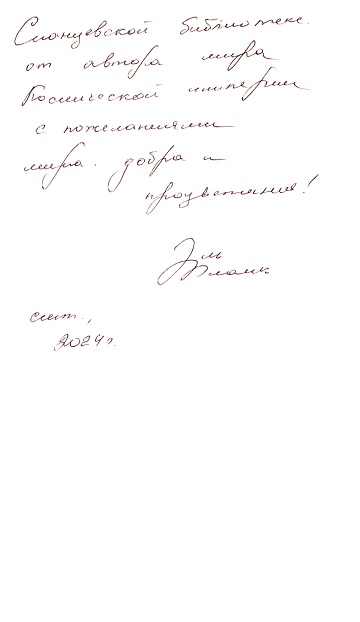 Сланцевской библиотеке.
от автора мира
Космической империи
с пожеланиями
мира. добра и
процветания!
Эль
Бланк
сент.,
2024 г.